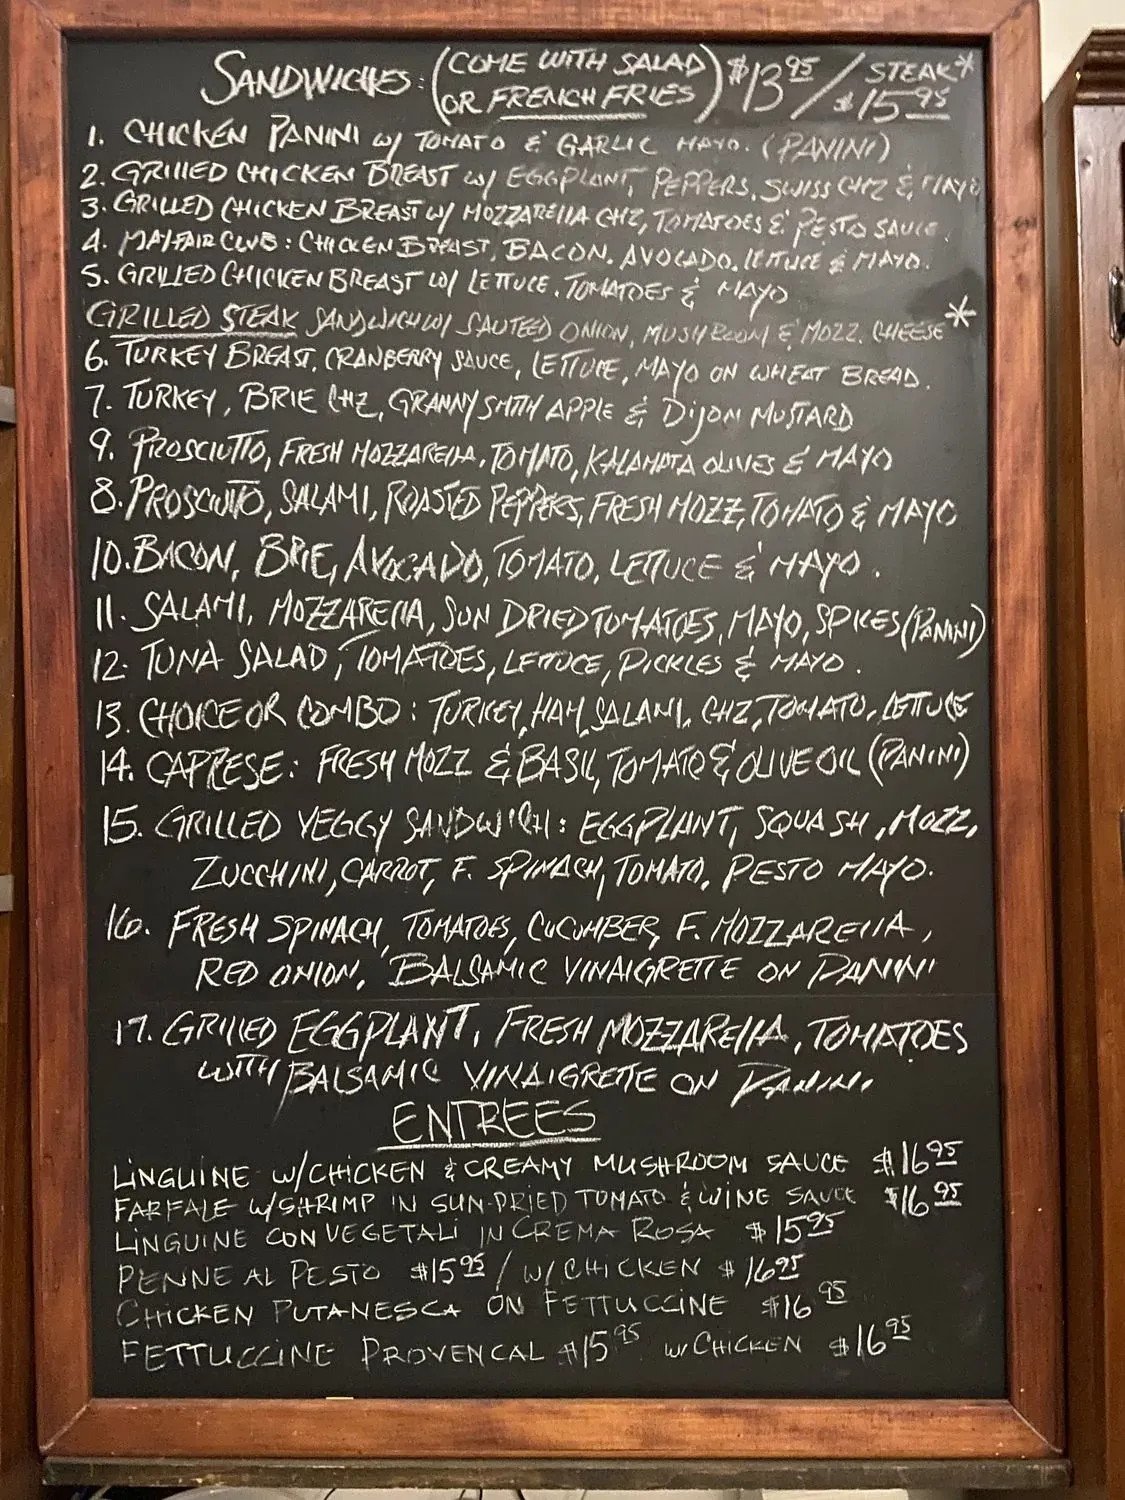 SANDWICHES: (COME WITH SALAD OR FRENCH FRIES) $13.95 / STEAK* $15.95
1. CHICKEN PANINI W/ TOMATO & GARLIC MAYO. (PANINI)
2. GRILLED CHICKEN BREAST W/ EGGPLANT, PEPPERS, SWISS CHZ & MAYO
3. GRILLED CHICKEN BREAST W/ MOZZARELLA CHZ, TOMATOES & PESTO SAUCE.
4. MAYFAIR CLUB: CHICKEN BREAST, BACON, AVOCADO, LETTUCE & MAYO.
5. GRILLED CHICKEN BREAST W/ LETTUCE, TOMATOES & MAYO
GRILLED STEAK SANDWICH W/ SAUTEED ONION, MUSHROOM & MOZZ. CHEESE *
6. TURKEY BREAST, CRANBERRY SAUCE, LETTUCE, MAYO ON WHEAT BREAD.
7. TURKEY, BRIE CHZ, GRANNY SMITH APPLE & DIJON MUSTARD
9. PROSCIUTTO, FRESH MOZZARELLA, TOMATO, KALAMATA OLIVES & MAYO
8. PROSCIUTTO, SALAMI, ROASTED PEPPERS, FRESH MOZZ, TOMATO & MAYO
10. BACON, BRIE, AVOCADO, TOMATO, LETTUCE & MAYO.
11. SALAMI, MOZZARELLA, SUN DRIED TOMATOES, MAYO, SPICES (PANINI)
12. TUNA SALAD, TOMATOES, LETTUCE, PICKLES & MAYO.
13. CHOICE OR COMBO: TURKEY, HAM, SALAMI, CHZ, TOMATO, LETTUCE
14. CAPRESE: FRESH MOZZ & BASIL, TOMATO & OLIVE OIL (PANINI)
15. GRILLED VEGGY SANDWICH: EGGPLANT, SQUASH, MOZZ,
ZUCCHINI, CARROT, F. SPINACH, TOMATO, PESTO MAYO.
16. FRESH SPINACH, TOMATOES, CUCUMBER, F. MOZZARELLA,
RED ONION, BALSAMIC VINAIGRETTE ON PANINI
17. GRILLED EGGPLANT, FRESH MOZZARELLA, TOMATOES
WITH BALSAMIC VINAIGRETTE ON PANINI.
ENTREES
LINGUINE W/CHICKEN & CREAMY MUSHROOM SAUCE $16.95
FARFALE W/SHRIMP IN SUN-DRIED TOMATO & WINE SAUCE $16.95
LINGUINE CON VEGETALI IN CREMA ROSA $15.95
PENNE AL PESTO $15.95 / W/CHICKEN $16.95
CHICKEN PUTANESCA ON FETTUCCINE $16.95
FETTUCCINE PROVENCAL $15.95 W/CHICKEN $16.95